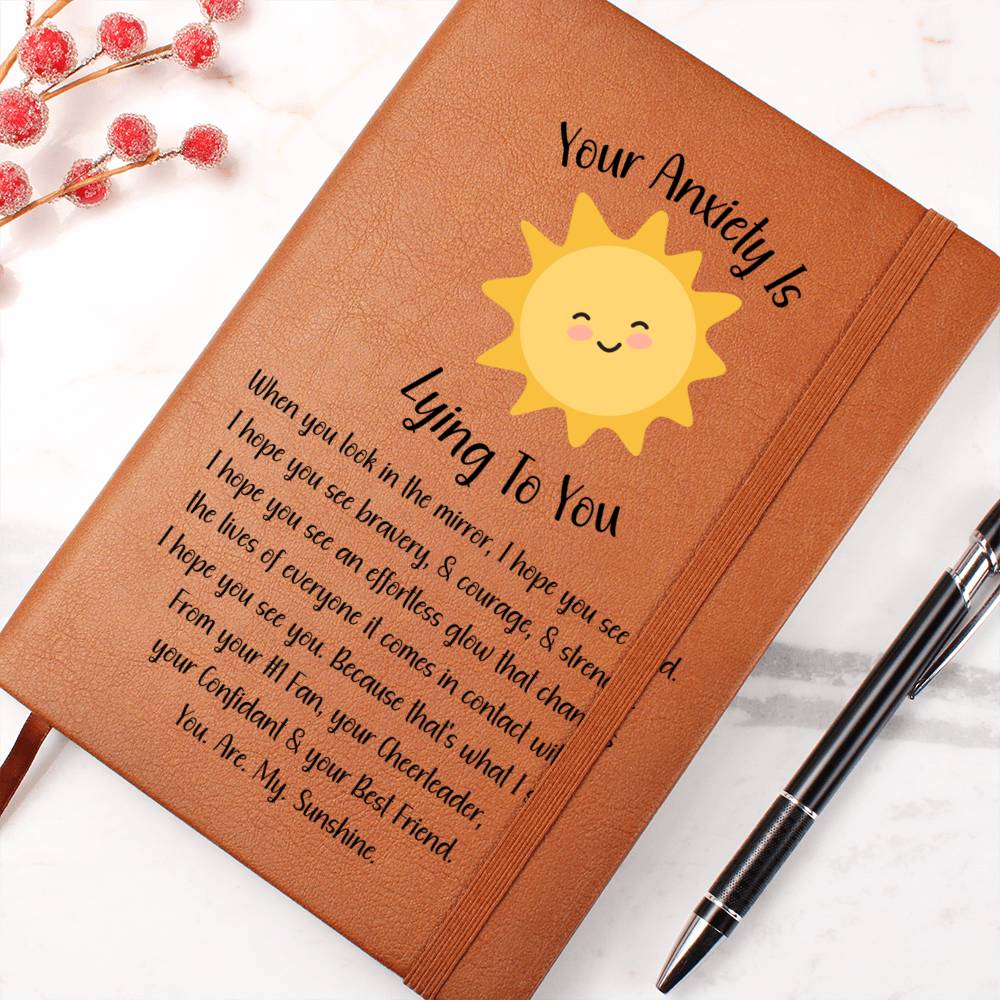 Your Anxiety Is
Lying To You
When you look in the mirror, I hope you see
I hope you see bravery, & courage, &
I hope you see an effortless glow that
the lives of everyone it comes in contact
I hope you see you. Because that's what I
From your #1 Fan, your Cheerleader,
your Confidant & your Best Friend.
You. Are. My. Sunshine.